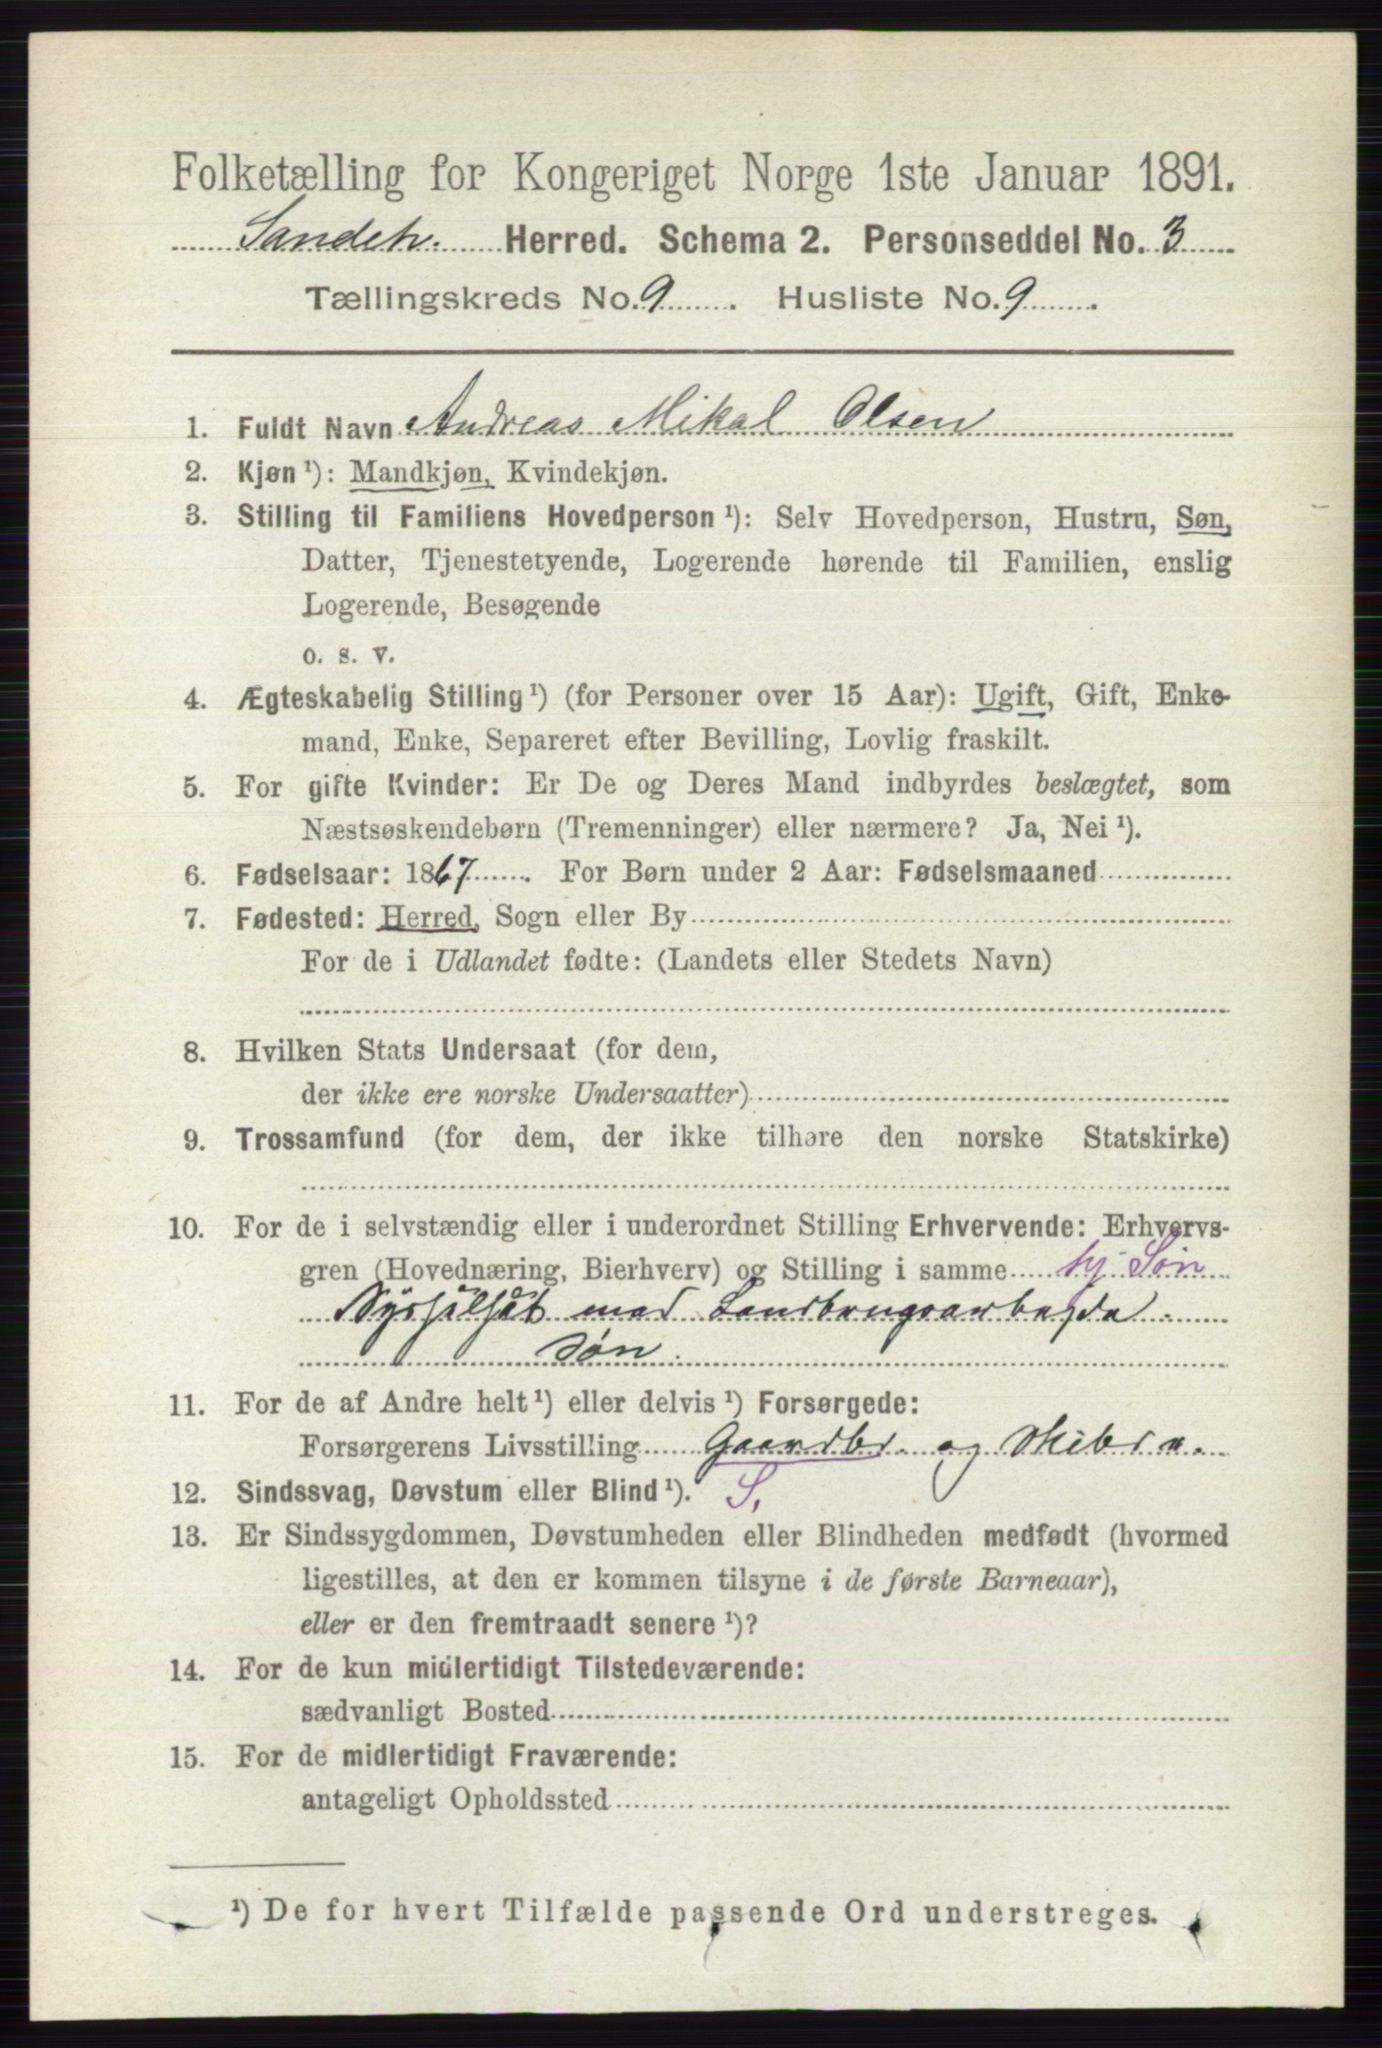 Folketælling for Kongeriget Norge 1ste Januar 1891.
Sandeh. Herred. Schema 2. Personseddel No. 3
Tællingskreds No. 9. Husliste No. 9.
1. Fuldt Navn Andreas Mikal Olsen
2. Kjøn ¹): Mandkjøn, Kvindekjøn.
3. Stilling til Familiens Hovedperson ¹): Selv Hovedperson, Hustru, Søn,
Datter, Tjenestetyende, Logerende hørende til Familien, enslig
Logerende, Besøgende
o. s. v.
4. Ægteskabelig Stilling ¹) (for Personer over 15 Aar): Ugift, Gift, Enke-
mand, Enke, Separeret efter Bevilling, Lovlig fraskilt.
5. For gifte Kvinder: Er De og Deres Mand indbyrdes beslægtet, som
Næstsøskendebørn (Tremenninger) eller nærmere? Ja, Nei ¹).
6. Fødselsaar: 1867. For Børn under 2 Aar: Fødselsmaaned
7. Fødested: Herred, Sogn eller By
For de i Udlandet fødte: (Landets eller Stedets Navn)
8. Hvilken Stats Undersaat (for dem,
der ikke ere norske Undersaatter)
9. Trossamfund (for dem, der ikke tilhøre den norske Statskirke)
10. For de i selvstændig eller i underordnet Stilling Erhvervende: Erhvervs-
gren (Hovednæring, Bierhverv) og Stilling i samme hj Søn
Syssilsat med Landbrugsarbejde.
Søn.
11. For de af Andre helt ¹) eller delvis ¹) Forsørgede:
Forsørgerens Livsstilling Gaardbr. og Skibsr.
12. Sindssvag, Døvstum eller Blind ¹). S,
13. Er Sindssygdommen, Døvstumheden eller Blindheden medfødt (hvormed
ligestilles, at den er kommen tilsyne i de første Barneaar),
eller er den fremtraadt senere ¹)?
14. For de kun midlertidigt Tilstedeværende:
sædvanligt Bosted
15. For de midlertidigt Fraværende:
antageligt Opholdssted
¹) De for hvert Tilfælde passende Ord understreges.